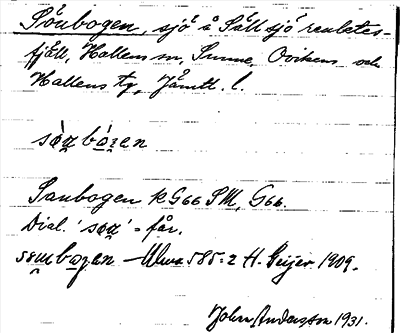 Såubogen, sjö å Sållsjö renbetes-
fjäll, Hallens sn, Sunne, Ovikens och
Hallens tg, Jämtl. l.
Saubogen k G66 SM, G66.
Dial. 'søa' = får.
Ulma 585:2 H. Geijer 1909.
John Andersson 1931.